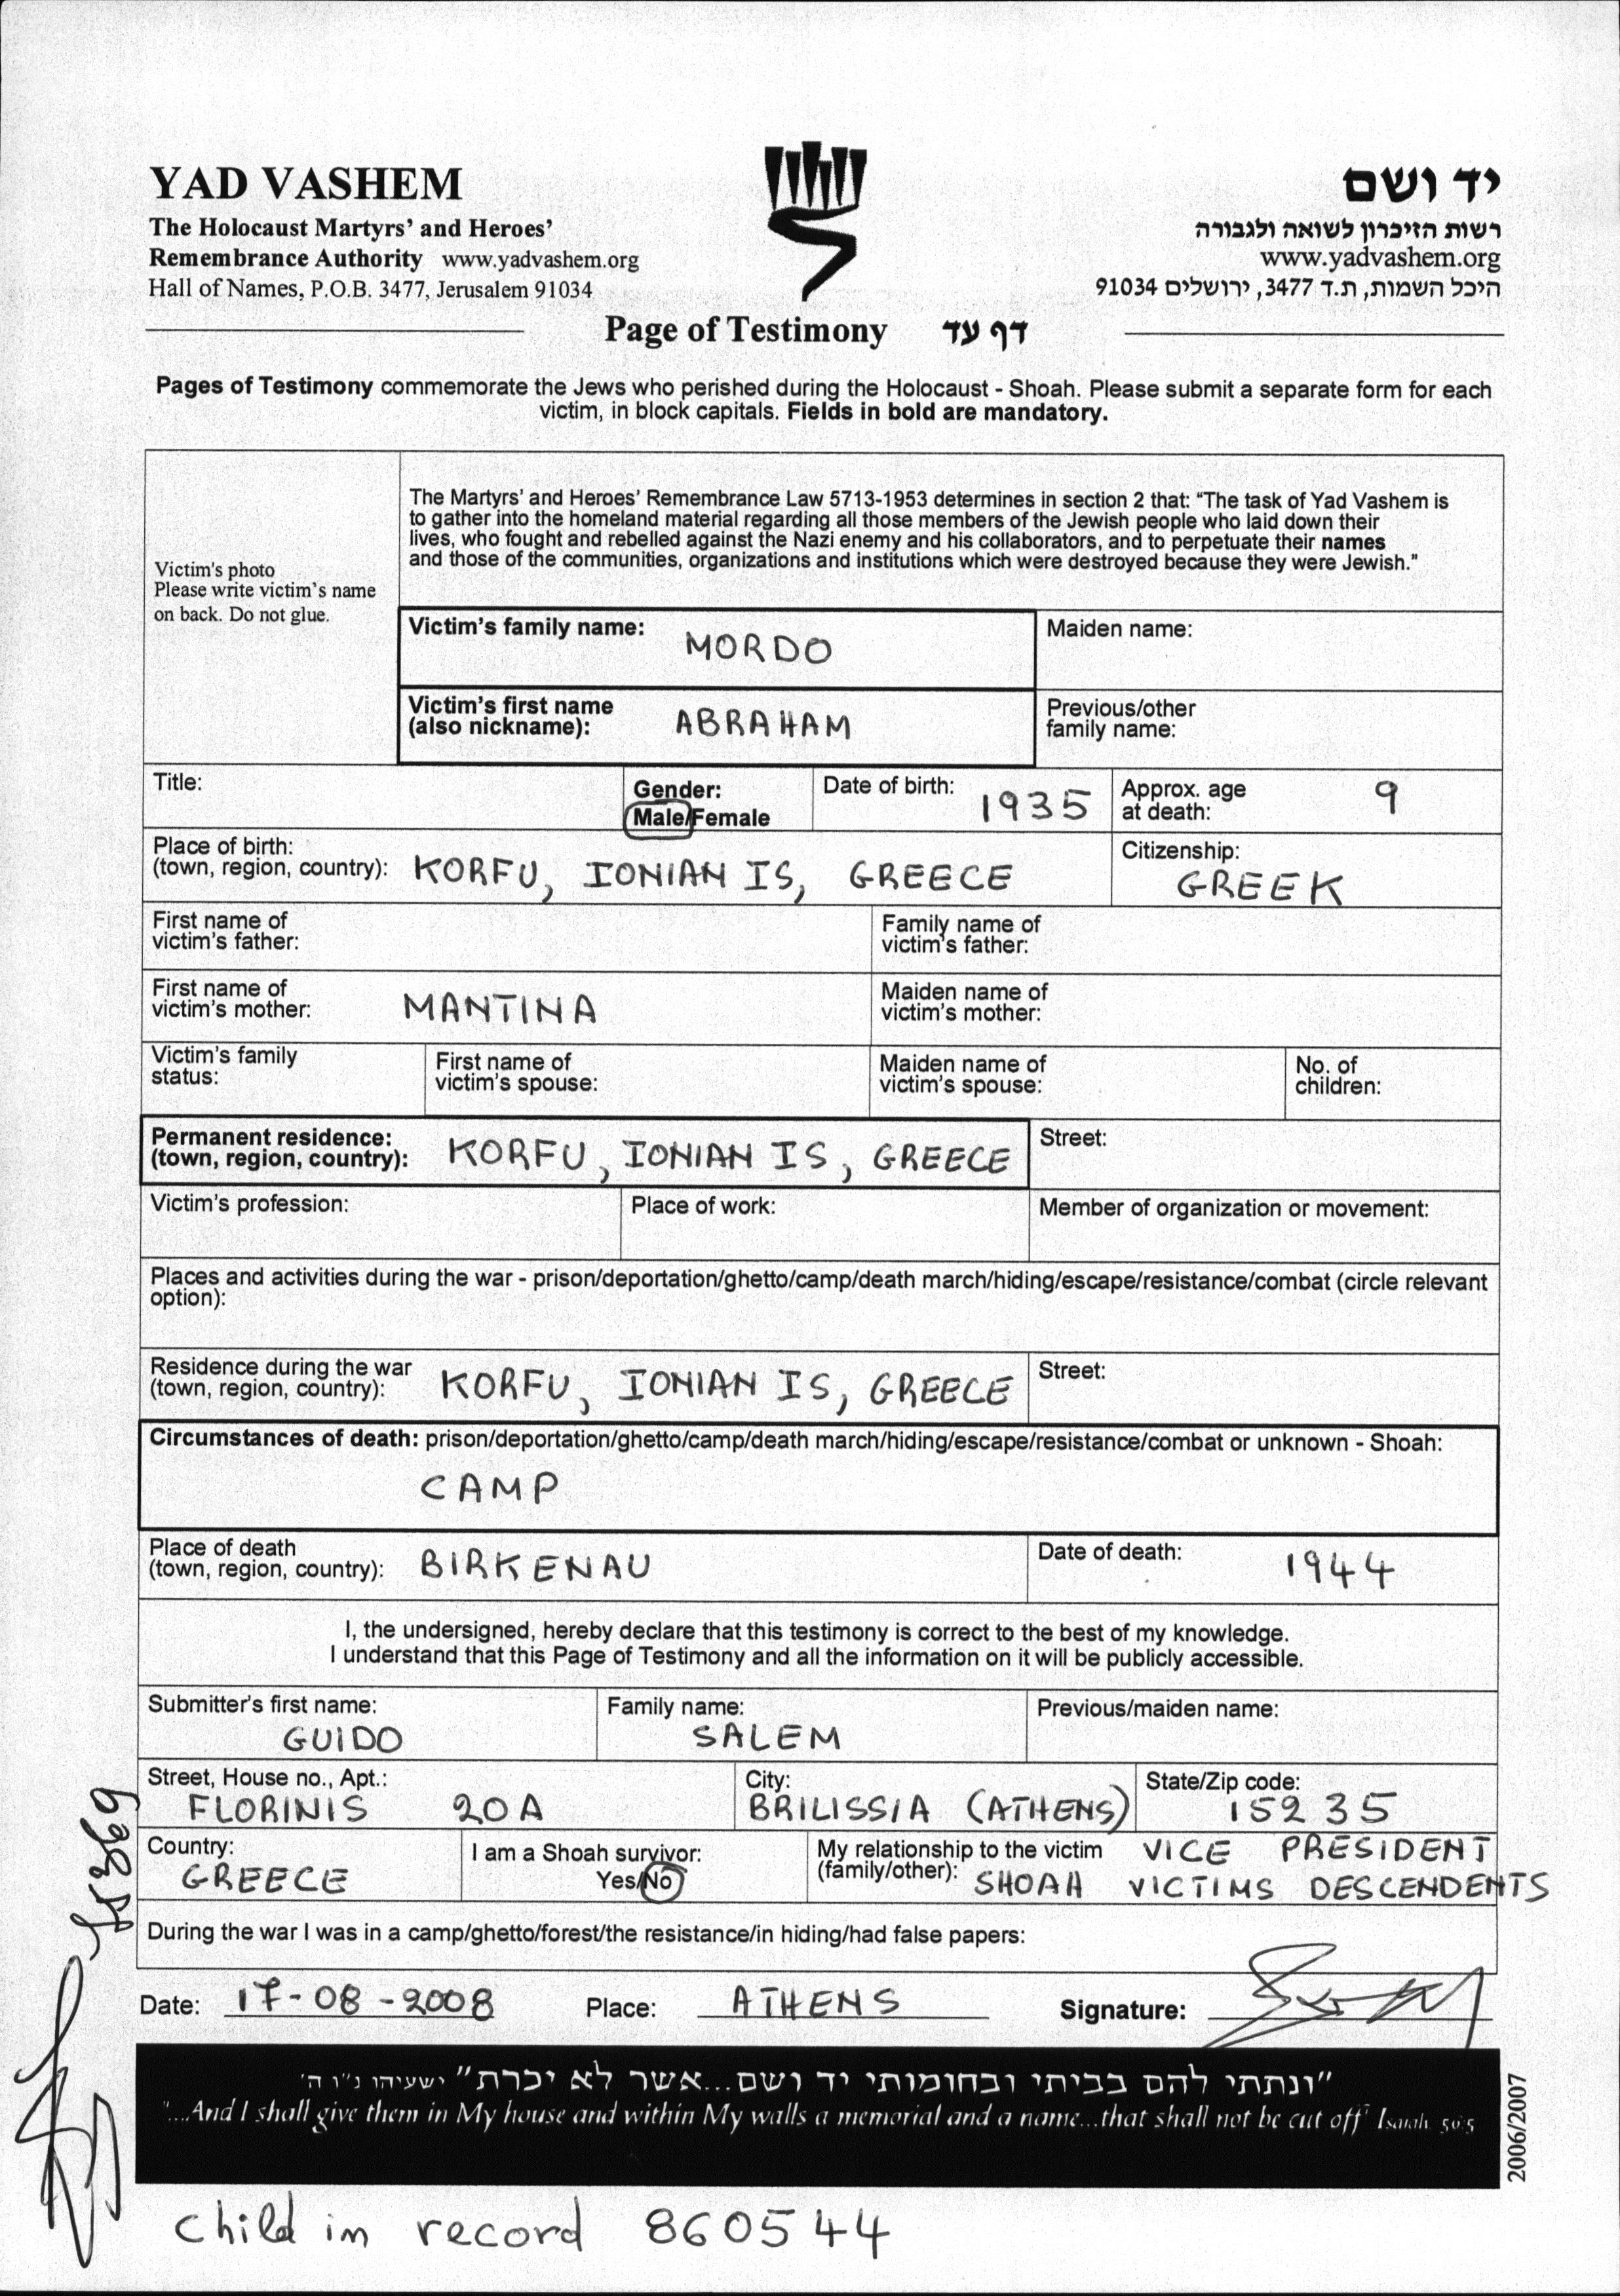 YAD VASHEM
The Holocaust Martyrs' and Heroes'
Remembrance Authority www.yadvashem.org
Hall of Names, P.O.B. 3477, Jerusalem 91034
יד ושם
רשות הזיכרון לשואה ולגבורה
www.yadvashem.org
היכל השמות, ת.ד 3477, ירושלים 91034
Page of Testimony דף עד
Pages of Testimony commemorate the Jews who perished during the Holocaust - Shoah. Please submit a separate form for each
victim, in block capitals. Fields in bold are mandatory.
Victim's photo
Please write victim's name
on back. Do not glue.
The Martyrs' and Heroes' Remembrance Law 5713-1953 determines in section 2 that: "The task of Yad Vashem is
to gather into the homeland material regarding all those members of the Jewish people who laid down their
lives, who fought and rebelled against the Nazi enemy and his collaborators, and to perpetuate their names
and those of the communities, organizations and institutions which were destroyed because they were Jewish."
Victim's family name: MORDO
Maiden name:
Victim's first name
(also nickname): ABRAHAM
Previous/other
family name:
Title:
Gender:
Male/Female
Date of birth: 1935
Approx. age
at death: 9
Place of birth:
(town, region, country): KORFU, IONIAN IS, GREECE
Citizenship:
GREEK
First name of
victim's father:
Family name of
victim's father:
First name of
victim's mother: MANTINA
Maiden name of
victim's mother:
Victim's family
status:
First name of
victim's spouse:
Maiden name of
victim's spouse:
No. of
children:
Permanent residence:
(town, region, country): KORFU, IONIAN IS, GREECE
Street:
Victim's profession:
Place of work:
Member of organization or movement:
Places and activities during the war - prison/deportation/ghetto/camp/death march/hiding/escape/resistance/combat (circle relevant
option):
Residence during the war
(town, region, country): KORFU, IONIAN IS, GREECE
Street:
Circumstances of death: prison/deportation/ghetto/camp/death march/hiding/escape/resistance/combat or unknown - Shoah:
CAMP
Place of death
(town, region, country): BIRKENAU
Date of death: 1944
I, the undersigned, hereby declare that this testimony is correct to the best of my knowledge.
I understand that this Page of Testimony and all the information on it will be publicly accessible.
Submitter's first name:
GUIDO
Family name:
SALEM
Previous/maiden name:
Street, House no., Apt.:
FLORINIS 20A
City:
BRILISSIA (ATHENS)
State/Zip code:
15235
Country:
GREECE
I am a Shoah survivor:
Yes/No
My relationship to the victim VICE PRESIDENT
(family/other): SHOAH VICTIMS DESCENDENTS
During the war I was in a camp/ghetto/forest/the resistance/in hiding/had false papers:
Date: 17-08-2008 Place: ATHENS Signature:
"ונתתי להם בביתי ובחומותי יד ושם...אשר לא יכרת" ישעיהו נ"ו ה'
"...And I shall give them in My house and within My walls a memorial and a name...that shall not be cut off" Isaiah 56:5
2006/2007
child in record 860544